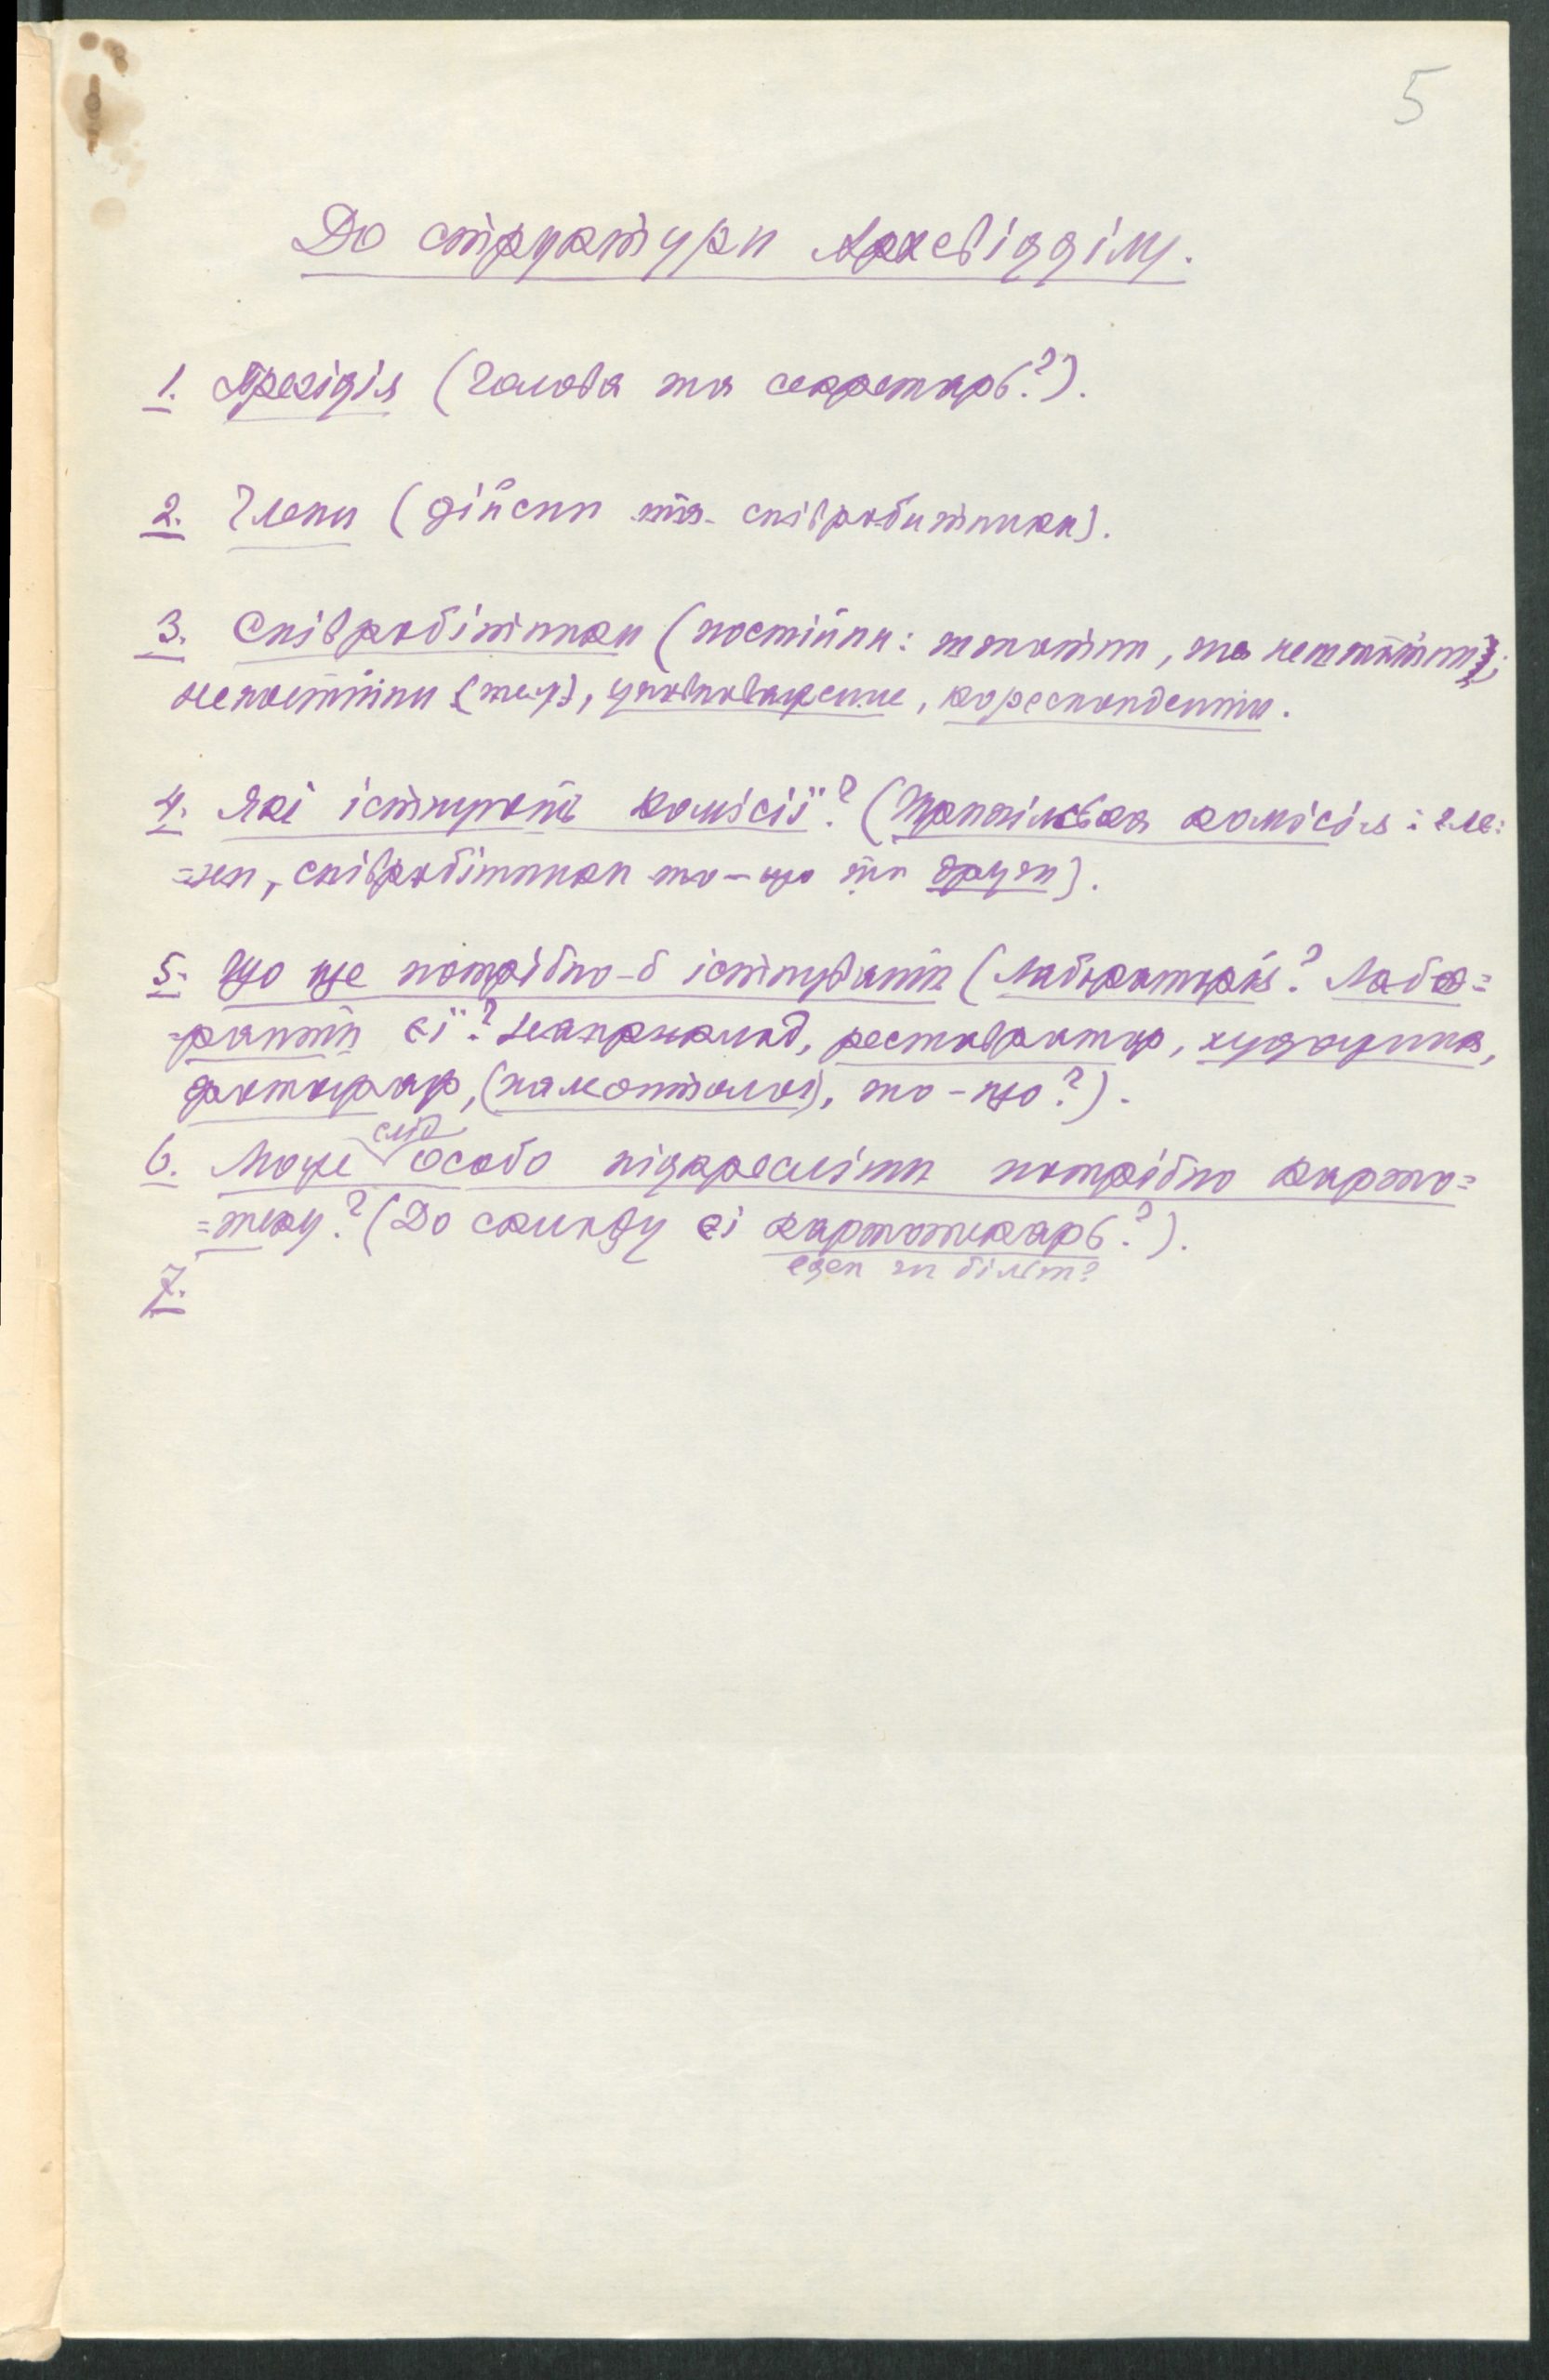 5
До структури Архевідділу.
1. Президія (Голова та секретарь?).
2. Члени (дійсни та співробитники).
3. Співробітники (постійни: штатни, та нештатни);
непостійни (теж), уповноважение, кореспонденти.
4. Які існують комісії? (Трипільська комісія: чле-
=ни, співробітники то-що та друзи).
5. Що ще потрібно-б існувати (Лабораторія? Лабо=
=ранти єї? Наприклад, реставратор, художник,
фотограф, (палеонтолог), то-що?).
слід
6. Може особо підкреслити потрібно карто=
=теку? (До складу єі картотекарь?).
еден чи більш?
7.